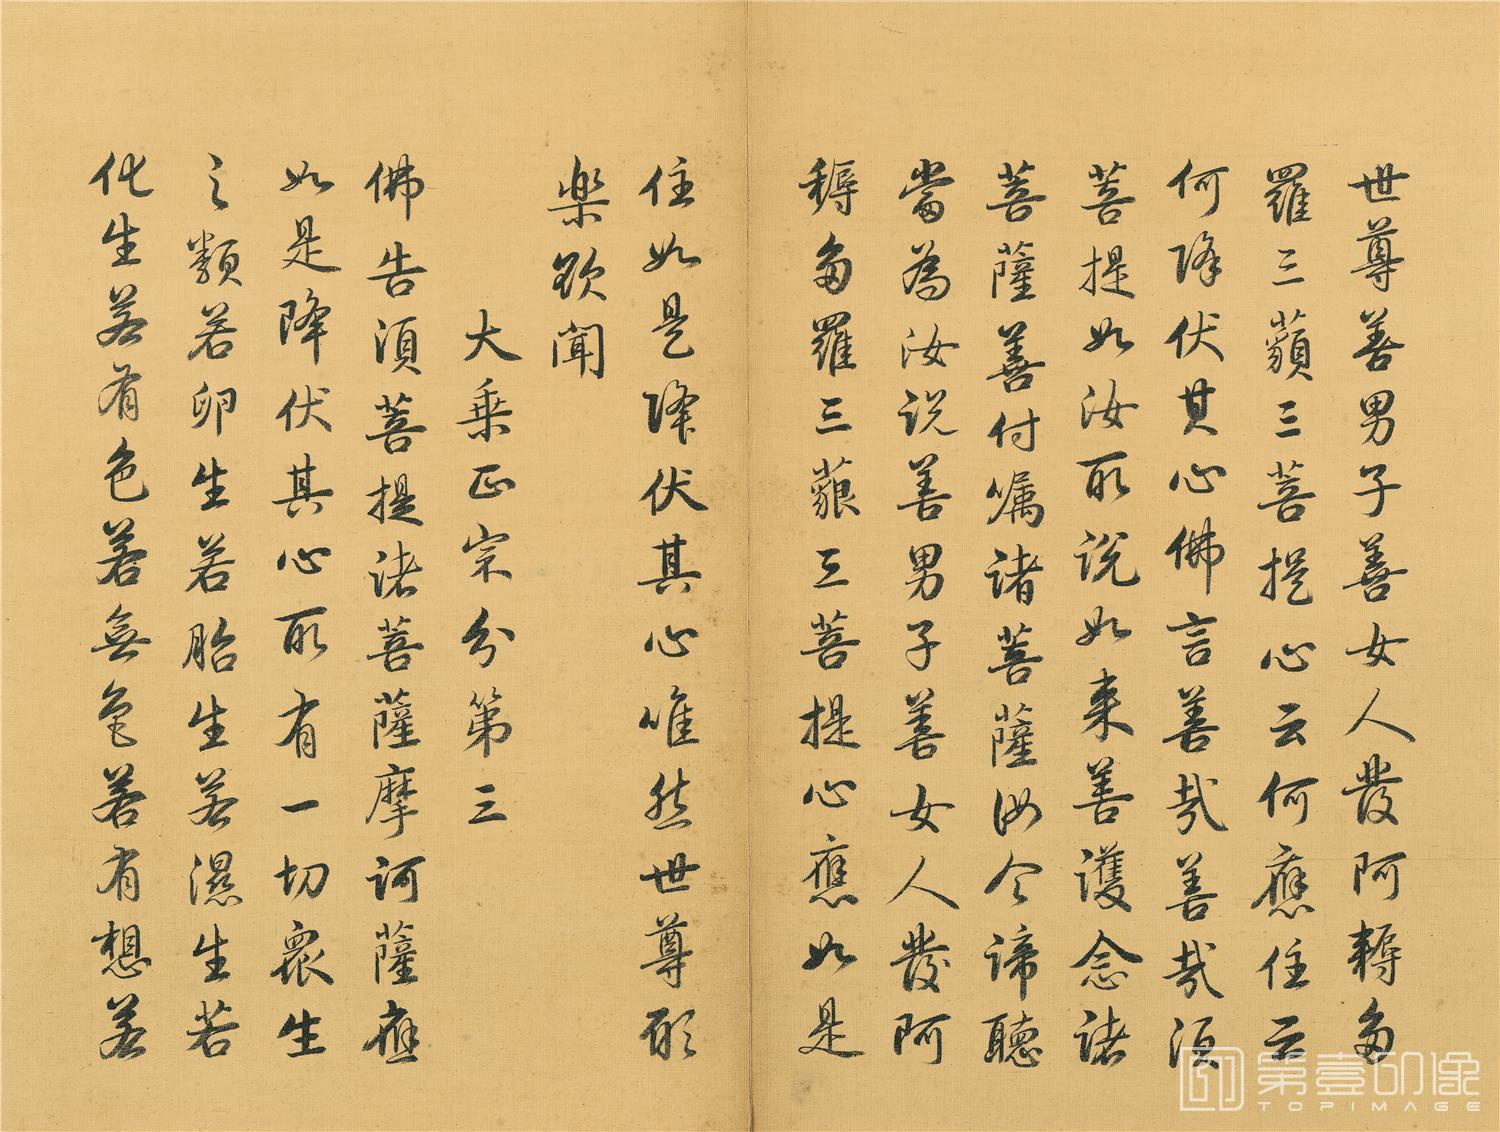 世尊善男子善女人發阿耨多
羅三藐三菩提心云何應住云
何降伏其心佛言善哉善哉須
菩提如汝所說如來善護念諸
菩薩善付囑諸菩薩汝今諦聽
當為汝說善男子善女人發阿
耨多羅三藐三菩提心應如是
住如是降伏其心唯然世尊願
樂欲聞
大乘正宗分第三
佛告須菩提諸菩薩摩訶薩應
如是降伏其心所有一切眾生
之類若卵生若胎生若濕生若
化生若有色若無色若有想若
第壹印像
TOPIMAGE